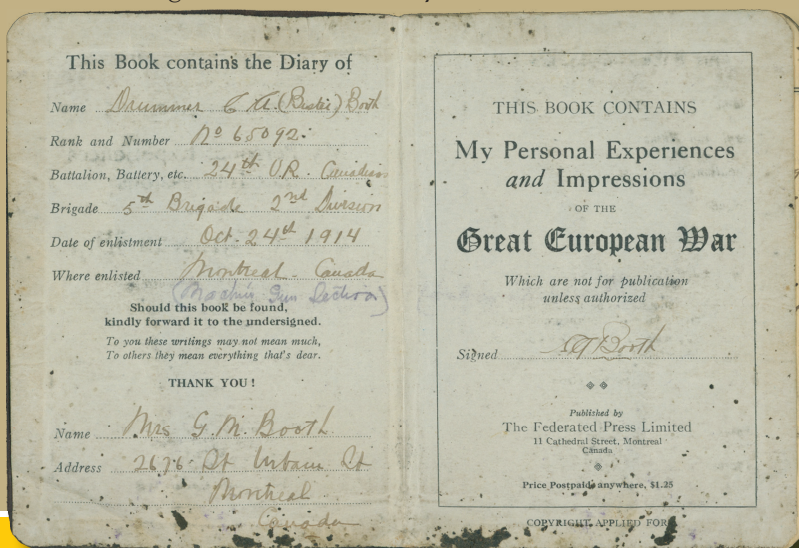 This Book contains the Diary of
Name Drummer C A. (Buster) Booth
Rank and Number No 65092.
Battalion, Battery, etc. 24th V.R. Canadian
Brigade 5th Brigade 2nd Division
Date of enlistment Oct. 24th 1914
Where enlisted Montreal. Canada
(Machine Gun Section)
Should this book be found,
kindly forward it to the undersigned.
To you these writings may not mean much,
To others they mean everything that's dear.
THANK YOU!
Name Mrs G. M. Booth
Address 2676 St Urbain St
Montreal
Canada
THIS BOOK CONTAINS
My Personal Experiences
and Impressions
OF THE
Great European War
Which are not for publication
unless authorized
Signed Booth
Published by
The Federated Press Limited
11 Cathedral Street, Montreal
Canada
Price Postpaid anywhere, $1.25
COPYRIGHT APPLIED FOR